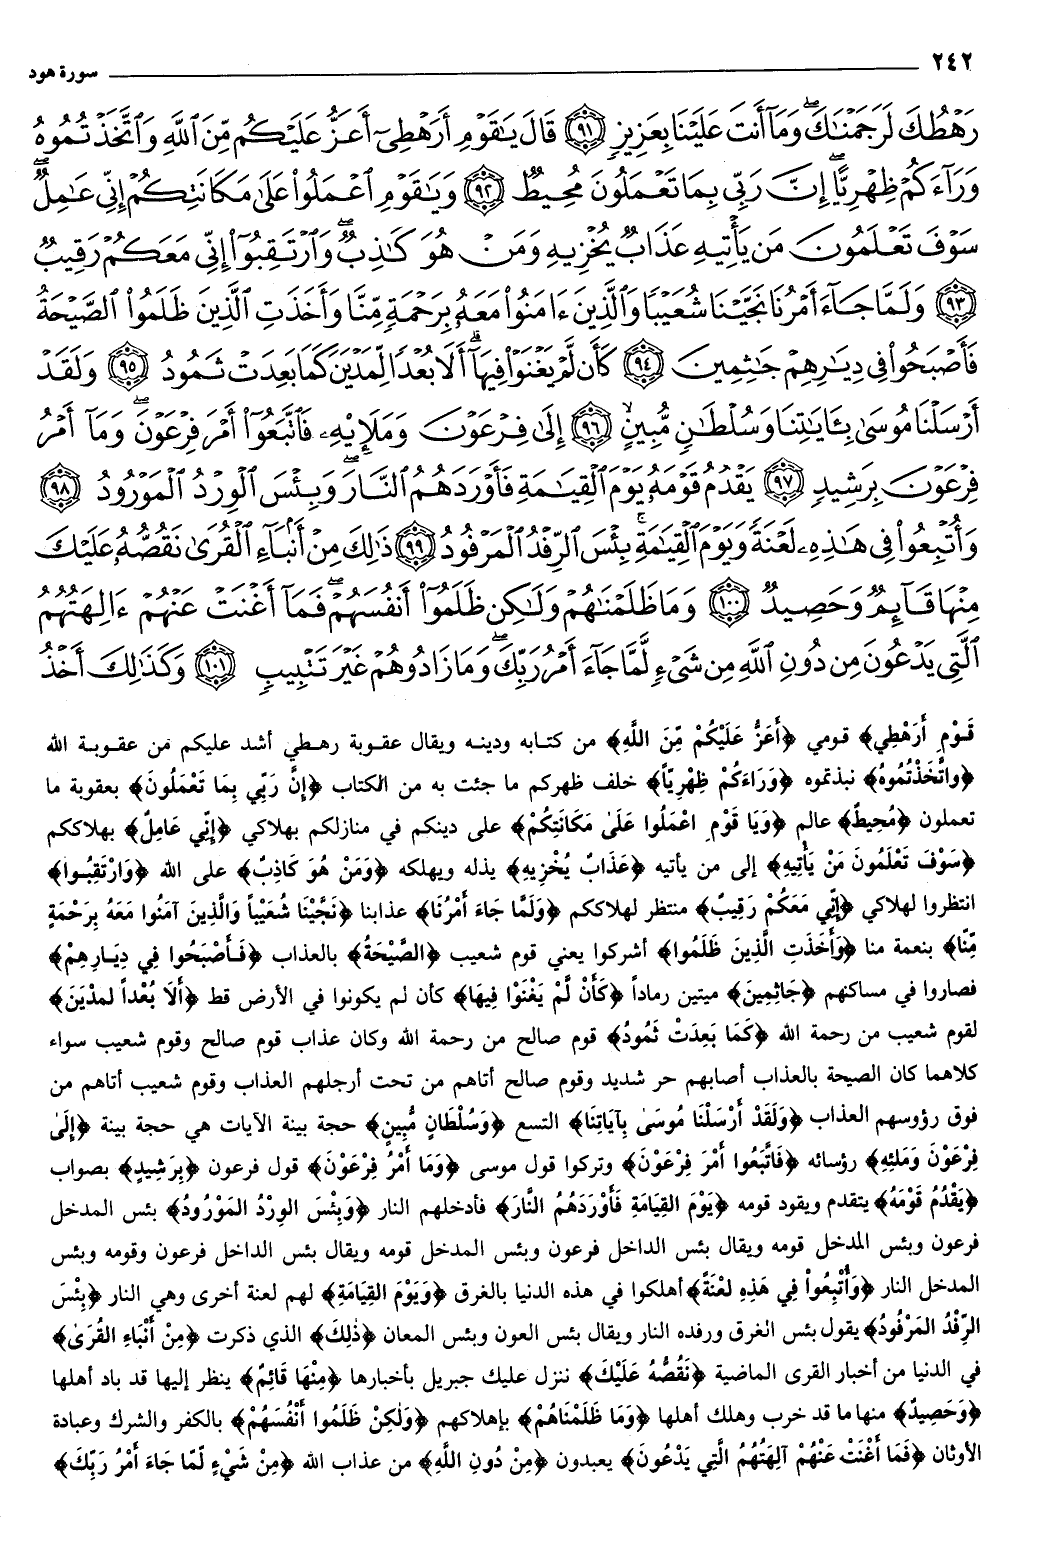 ٢٤٢ سورة هود
رَهْطُكَ لَرَجَمْنَٰكَ ۖ وَمَآ أَنتَ عَلَيْنَا بِعَزِيزٍ ﴿٩١﴾ قَالَ يَٰقَوْمِ أَرَهْطِىٓ أَعَزُّ عَلَيْكُم مِّنَ ٱللَّهِ وَٱتَّخَذْتُمُوهُ
وَرَآءَكُمْ ظِهْرِيًّا ۖ إِنَّ رَبِّى بِمَا تَعْمَلُونَ مُحِيطٌ ﴿٩٢﴾ وَيَٰقَوْمِ ٱعْمَلُوا۟ عَلَىٰ مَكَانَتِكُمْ إِنِّى عَٰمِلٌ ۖ
سَوْفَ تَعْلَمُونَ مَن يَأْتِيهِ عَذَابٌ يُخْزِيهِ وَمَنْ هُوَ كَٰذِبٌ ۖ وَٱرْتَقِبُوٓا۟ إِنِّى مَعَكُمْ رَقِيبٌ
﴿٩٣﴾ وَلَمَّا جَآءَ أَمْرُنَا نَجَّيْنَا شُعَيْبًا وَٱلَّذِينَ ءَامَنُوا۟ مَعَهُۥ بِرَحْمَةٍ مِّنَّا وَأَخَذَتِ ٱلَّذِينَ ظَلَمُوا۟ ٱلصَّيْحَةُ
فَأَصْبَحُوا۟ فِى دِيَٰرِهِمْ جَٰثِمِينَ ﴿٩٤﴾ كَأَن لَّمْ يَغْنَوْا۟ فِيهَآ ۗ أَلَا بُعْدًا لِّمَدْيَنَ كَمَا بَعِدَتْ ثَمُودُ ﴿٩٥﴾ وَلَقَدْ
أَرْسَلْنَا مُوسَىٰ بِـَٔايَٰتِنَا وَسُلْطَٰنٍ مُّبِينٍ ﴿٩٦﴾ إِلَىٰ فِرْعَوْنَ وَمَلَإِي۟هِۦ فَٱتَّبَعُوٓا۟ أَمْرَ فِرْعَوْنَ ۖ وَمَآ أَمْرُ
فِرْعَوْنَ بِرَشِيدٍ ﴿٩٧﴾ يَقْدُمُ قَوْمَهُۥ يَوْمَ ٱلْقِيَٰمَةِ فَأَوْرَدَهُمُ ٱلنَّارَ ۖ وَبِئْسَ ٱلْوِرْدُ ٱلْمَوْرُودُ ﴿٩٨﴾
وَأُتْبِعُوا۟ فِى هَٰذِهِۦ لَعْنَةً وَيَوْمَ ٱلْقِيَٰمَةِ ۚ بِئْسَ ٱلرِّفْدُ ٱلْمَرْفُودُ ﴿٩٩﴾ ذَٰلِكَ مِنْ أَنۢبَآءِ ٱلْقُرَىٰ نَقُصُّهُۥ عَلَيْكَ
مِنْهَا قَآئِمٌ وَحَصِيدٌ ﴿١٠٠﴾ وَمَا ظَلَمْنَٰهُمْ وَلَٰكِن ظَلَمُوٓا۟ أَنفُسَهُمْ ۖ فَمَآ أَغْنَتْ عَنْهُمْ ءَالِهَتُهُمُ
ٱلَّتِى يَدْعُونَ مِن دُونِ ٱللَّهِ مِن شَىْءٍ لَّمَّا جَآءَ أَمْرُ رَبِّكَ ۖ وَمَا زَادُوهُمْ غَيْرَ تَتْبِيبٍ ﴿١٠١﴾ وَكَذَٰلِكَ أَخْذُ
قَوْمِ أَرَهْطِي﴾ قومي ﴿أَعَزُّ عَلَيْكُمْ مِّنَ اللَّهِ﴾ من كتابه ودينه ويقال عقوبة رهطي أشد عليكم من عقوبة الله
﴿واتَّخَذْتُمُوهُ﴾ نبذتموه ﴿وَرَاءَكُمْ ظِهْرِيّاً﴾ خلف ظهركم ما جئت به من الكتاب ﴿إِنَّ رَبِّي بِمَا تَعْمَلُونَ﴾ بعقوبة ما
تعملون ﴿مُحِيطٌ﴾ عالم ﴿وَيَا قَوْمِ اعْمَلُوا عَلَىٰ مَكَانَتِكُمْ﴾ على دينكم في منازلكم بهلاكي ﴿إِنِّي عَامِلٌ﴾ بهلاككم
﴿سَوْفَ تَعْلَمُونَ مَنْ يَأْتِيهِ﴾ إلى من يأتيه ﴿عَذَابٌ يُخْزِيهِ﴾ يذله ويهلكه ﴿وَمَنْ هُوَ كَاذِبٌ﴾ على الله ﴿وَارْتَقِبُوا﴾
انتظروا لهلاكي ﴿إِنِّي مَعَكُمْ رَقِيبٌ﴾ منتظر لهلاككم ﴿وَلَمَّا جَاءَ أَمْرُنَا﴾ عذابنا ﴿نَجَّيْنَا شُعَيْباً وَالَّذِينَ آمَنُوا مَعَهُ بِرَحْمَةٍ
مِّنَّا﴾ بنعمة منا ﴿وَأَخَذَتِ الَّذِينَ ظَلَمُوا﴾ أشركوا يعني قوم شعيب ﴿الصَّيْحَةُ﴾ بالعذاب ﴿فَأَصْبَحُوا فِي دِيَارِهِمْ﴾
فصاروا في مساكنهم ﴿جَاثِمِينَ﴾ ميتين رماداً ﴿كَأَنْ لَّمْ يَغْنَوْا فِيهَا﴾ كأن لم يكونوا في الأرض قط ﴿أَلَا بُعْداً لمدْيَنَ﴾
لقوم شعيب من رحمة الله ﴿كَمَا بَعِدَتْ ثَمُودُ﴾ قوم صالح من رحمة الله وكان عذاب قوم صالح وقوم شعيب سواء
كلاهما كان الصيحة بالعذاب أصابهم حر شديد وقوم صالح أتاهم من تحت أرجلهم العذاب وقوم شعيب أتاهم من
فوق رؤوسهم العذاب ﴿وَلَقَدْ أَرْسَلْنَا مُوسَىٰ بِآيَاتِنَا﴾ التسع ﴿وَسُلْطَانٍ مُّبِينٍ﴾ حجة بينة الآيات هي حجة بينة ﴿إِلَىٰ
فِرْعَوْنَ وَمَلَئِهِ﴾ رؤسائه ﴿فَاتَّبَعُوا أَمْرَ فِرْعَوْنَ﴾ وتركوا قول موسى ﴿وَمَا أَمْرُ فِرْعَوْنَ﴾ قول فرعون ﴿بِرَشِيدٍ﴾ بصواب
﴿يَقْدُمُ قَوْمَهُ﴾ يتقدم ويقود قومه ﴿يَوْمَ القِيَامَةِ فَأَوْرَدَهُمُ النَّارَ﴾ فأدخلهم النار ﴿وَبِئْسَ الوِرْدُ المَوْرُودُ﴾ بئس المدخل
فرعون وبئس المدخل قومه ويقال بئس الداخل فرعون وبئس المدخل قومه ويقال بئس الداخل فرعون وقومه وبئس
المدخل النار ﴿وَأُتْبِعُوا فِي هَذِهِ لعْنَةً﴾ أهلكوا في هذه الدنيا بالغرق ﴿وَيَوْمَ القِيَامَةِ﴾ لهم لعنة أخرى وهي النار ﴿بِئْسَ
الرِّفْدُ المَرْفُودُ﴾ يقول بئس الغرق ورفده النار ويقال بئس العون وبئس المعان ﴿ذٰلِكَ﴾ الذي ذكرت ﴿مِنْ أَنْبَاءِ القُرَىٰ﴾
في الدنيا من أخبار القرى الماضية ﴿نَقُصُّهُ عَلَيْكَ﴾ ننزل عليك جبريل بأخبارها ﴿مِنْهَا قَائِمٌ﴾ ينظر إليها قد باد أهلها
﴿وَحَصِيدٌ﴾ منها ما قد خرب وهلك أهلها ﴿وَمَا ظَلَمْنَاهُمْ﴾ بإهلاكهم ﴿وَلٰكِنْ ظَلَمُوا أَنْفُسَهُمْ﴾ بالكفر والشرك وعبادة
الأوثان ﴿فَمَا أَغْنَتْ عَنْهُمْ آلِهَتُهُمُ الَّتِي يَدْعُونَ﴾ يعبدون ﴿مِنْ دُونِ اللَّهِ﴾ من عذاب الله ﴿مِنْ شَيْءٍ لَّمَّا جَاءَ أَمْرُ رَبِّكَ﴾